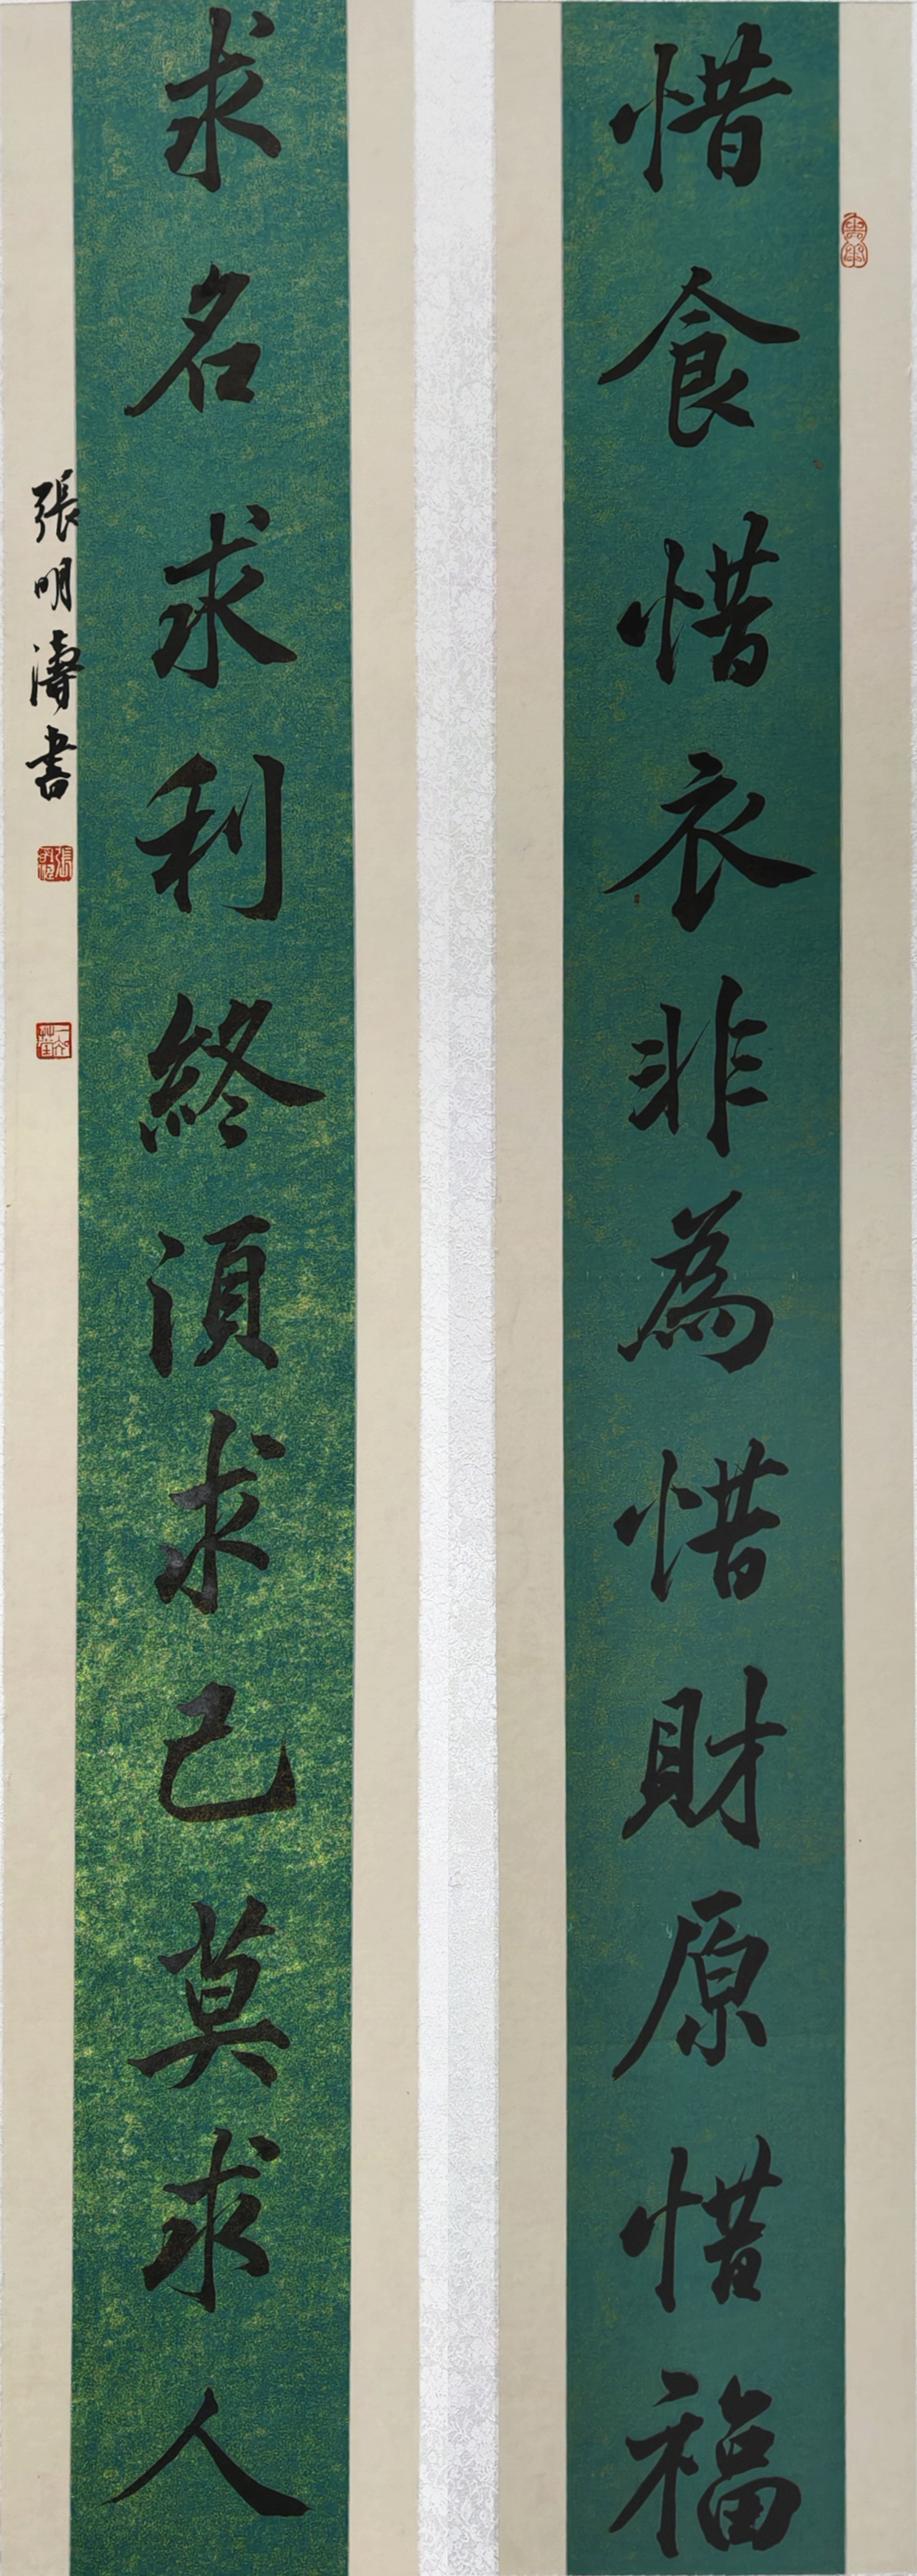 惜食惜衣非為惜財原惜福
求名求利終須求己莫求人
張明濤書